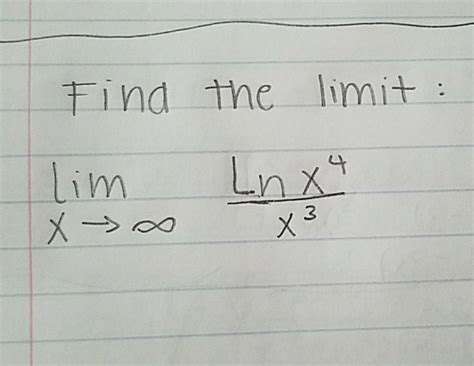 Find the limit :
lim x → ∞ Ln x⁴ / x³